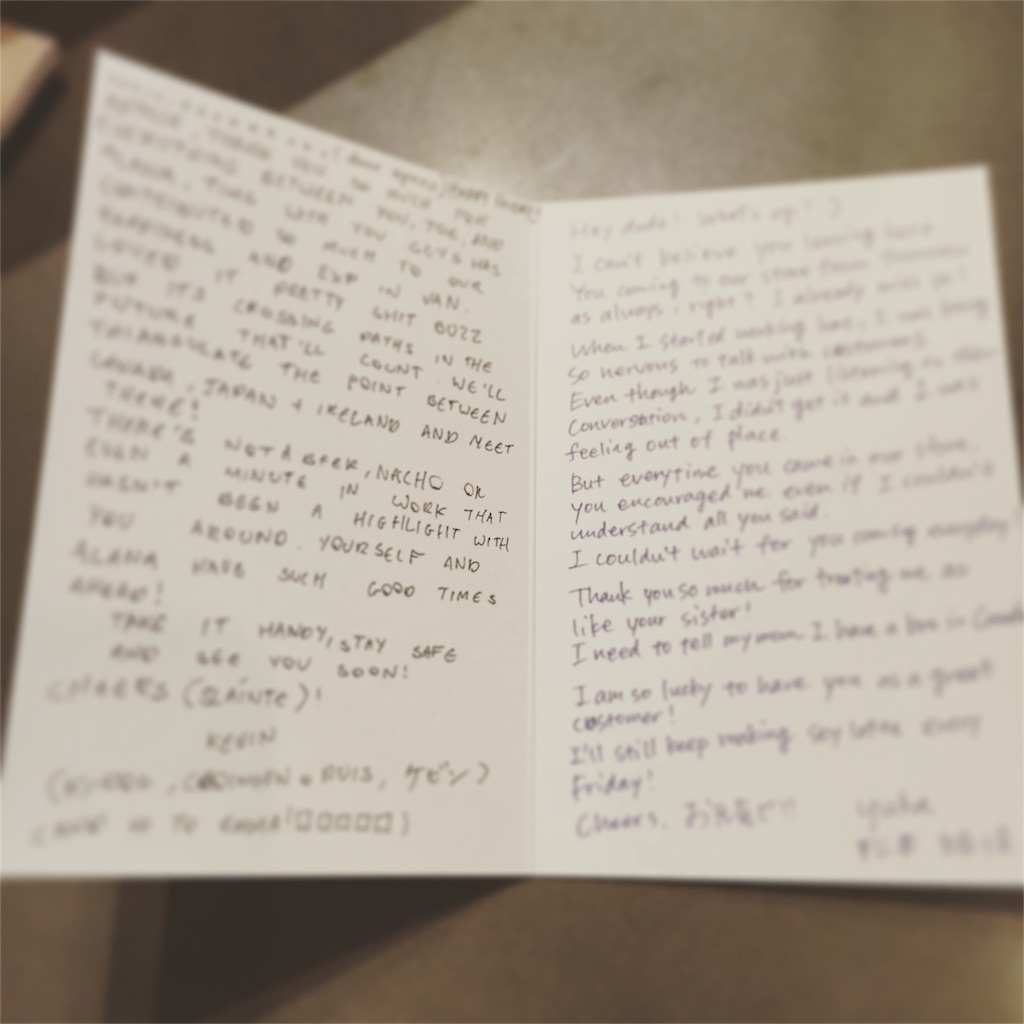 THANK YOU SO MUCH FOR
EVERYTHING BETWEEN YOU, JOE, AND
ALANA, TIME WITH YOU GUYS HAS
CONTRIBUTED SO MUCH TO OUR
HAPPINESS AND EXP IN VAN.
LOVED IT. PRETTY SHIT BUZZ
BUT ITS CROSSING PATHS IN THE
FUTURE THAT'LL COUNT. WE'LL
TRIANGULATE THE POINT BETWEEN
CANADA, JAPAN + IRELAND AND MEET
THERE!
THERE'S NOT A BEER, NACHO OR
EVEN A MINUTE IN WORK THAT
HASN'T BEEN A HIGHLIGHT WITH
YOU AROUND. YOURSELF AND
ALANA HAVE SUCH GOOD TIMES
AHEAD!
TAKE IT HANDY, STAY SAFE
AND SEE YOU SOON!
CHEERS (SLÁINTE)!
KEVIN
ケビン)
Hey dude! What's up? :)
I can't believe you leaving here.
You coming to our store from
as always, right? I already miss ya!
When I started working here, I was being
so nervous to talk with customers.
Even though I was just listening to
conversation, I didn't get it and I was
feeling out of place.
But everytime you came in our store,
you encouraged me even if I couldn't
understand all you said.
I couldn't wait for you coming everyday!
Thank you so much for treating me as
like your sister!
I need to tell my mom I have a bro in Canada
I am so lucky to have you as a great
customer!
I'll still keep making soy latte every
Friday!
Cheers. お元気で!! Yuka